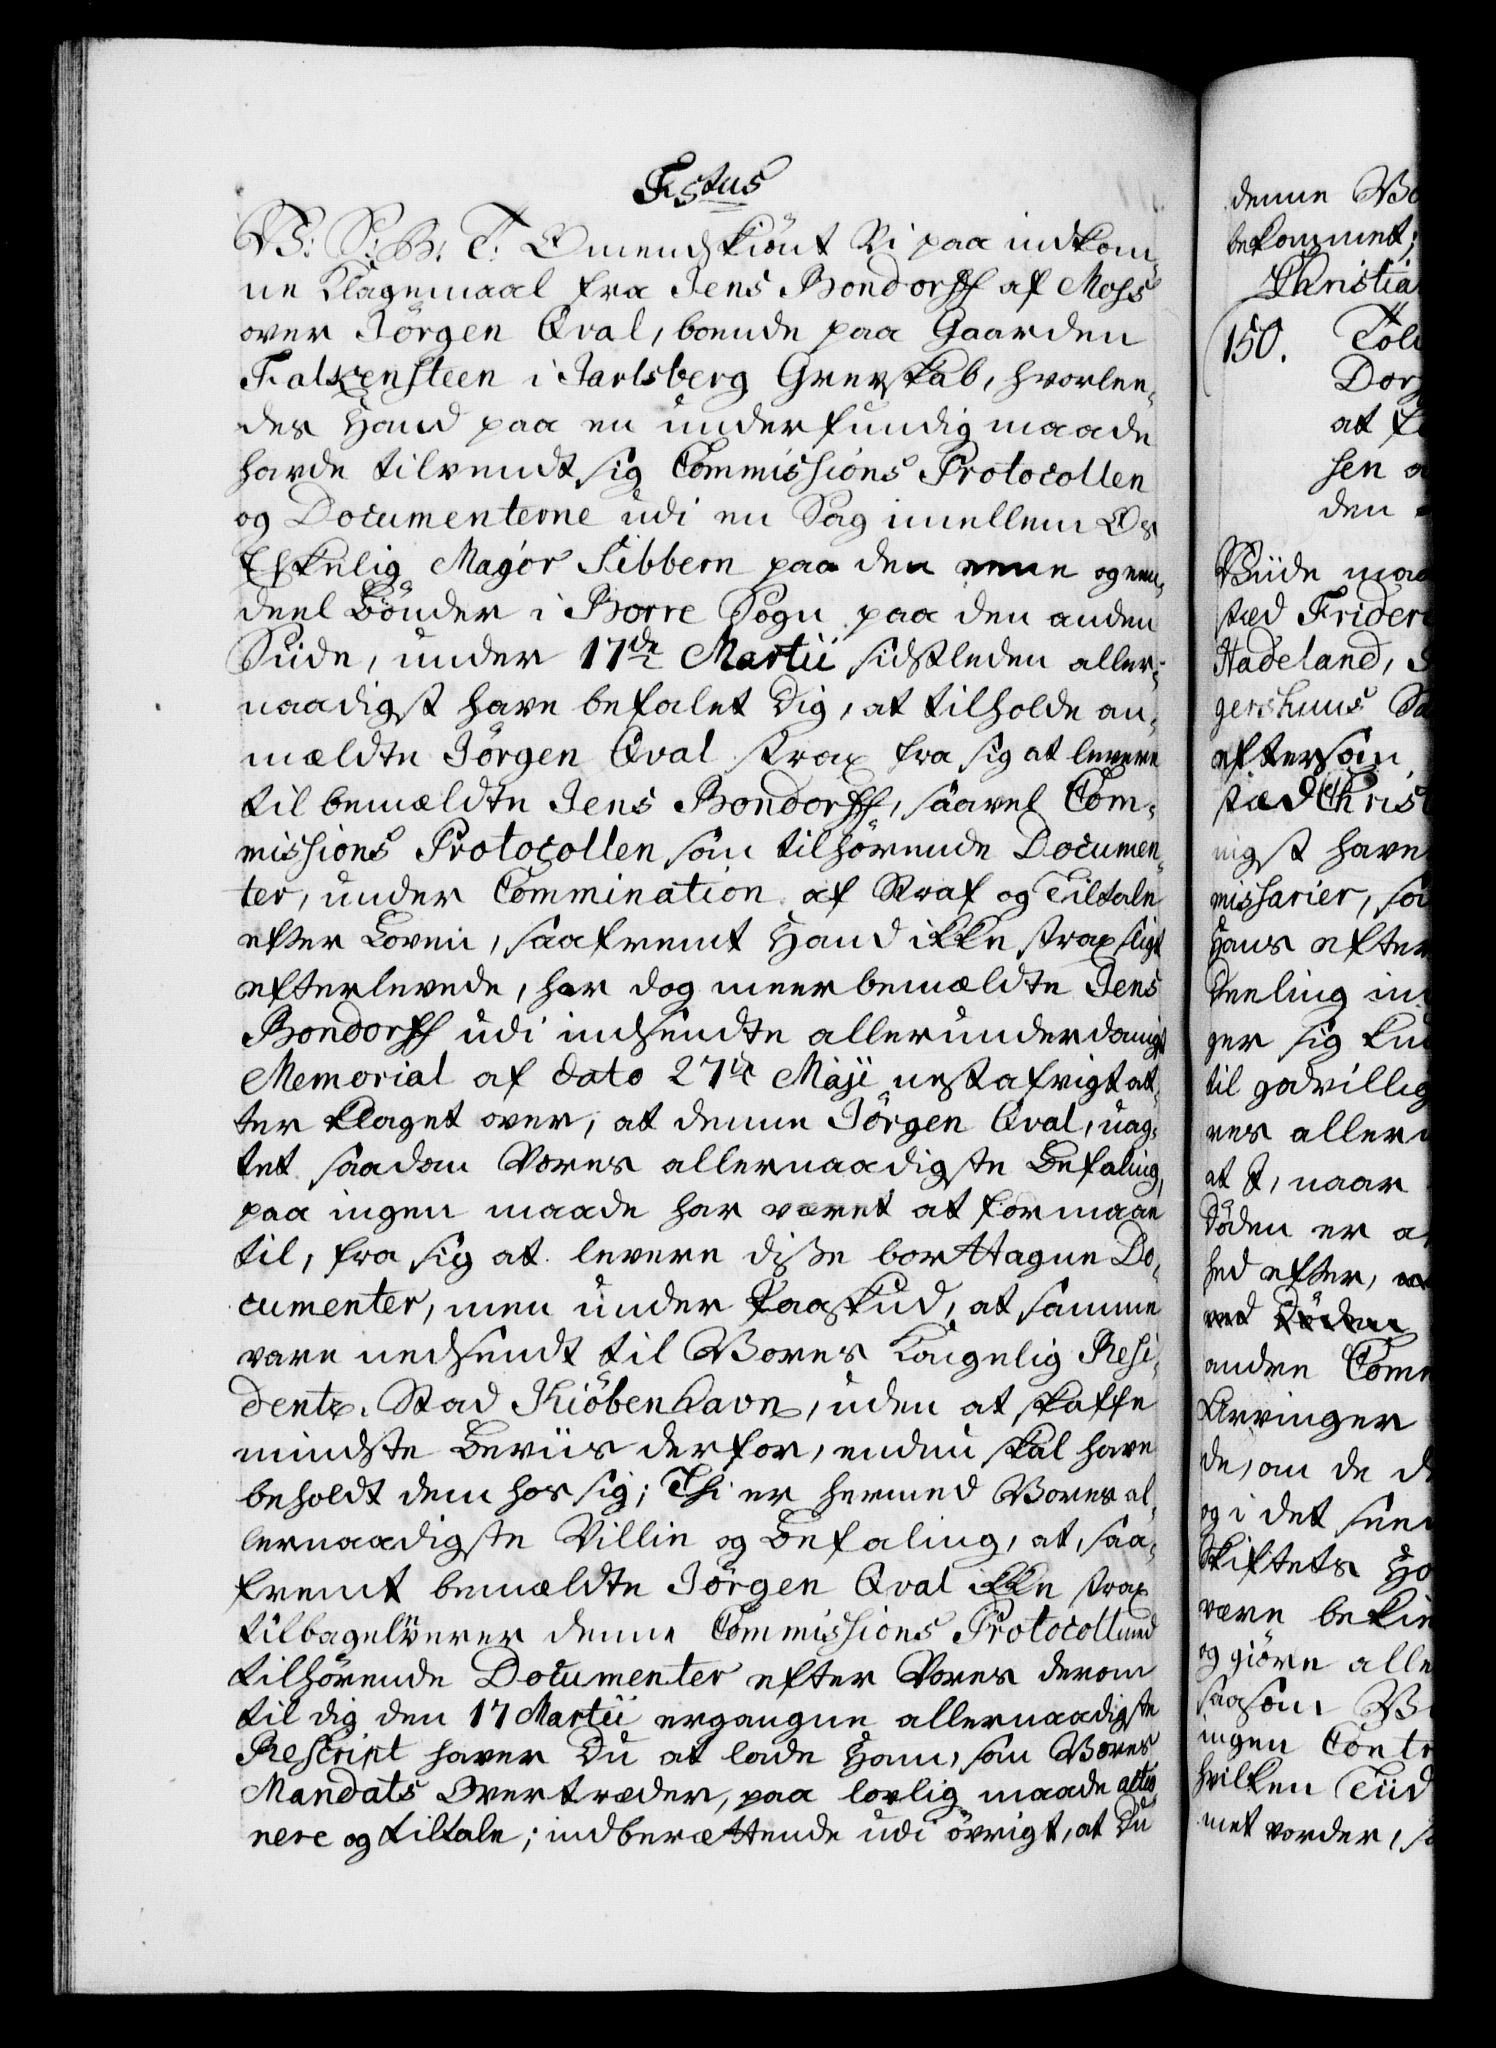 Fistus
V: S: B: T: Omendskiönt Vi paa indkom¬
ne Klagemaal fra Jens Bondorff af Moss
over Jörgen Qval, boende paa Gaarden
Falkensteen i Jarlsberg Grevskab, hvorlee¬
des Hand paa en underfundig maade
hafde tilvendt sig Commissions Protocollen
og Documenterne udi en Sag imellem Os
Elskelig Major Sibbern paa den eene og een¬
deel Bönder i Borre Sogn paa den anden
Siide, under 17de Martii sidstleden aller¬
naadigst have befalet Dig, at tilholde an¬
mældte Jörgen Qval strax fra sig at levere
til bemældte Jens Bondorff, saavel Com¬
missions Protocollen som tilhörende Documen¬
ter, under Commination af Straf og Tiltale
efter Loven, saafremt Hand ikke strax sligt
efterlevede, har dog meerbemældte Jens
Bondorff udi indsendte allerunderdanigst
Memorial af dato 27de Maji nestafvigt at¬
ter klaget over, at denne Jörgen Qval, uag¬
tet saadan Vores allernaadigste Befaling,
paa ingen maade har været at formaae
til, fra sig at levere diße borttagne Do¬
cumenter, men under Paaskud, at samme
vare nedsendt til Vores Kongelig Resi¬
dentz Stad Kiöbenhavn, uden at skaffe
mindste Beviis derfor, endnu skal have
beholdt dem hos sig; Thi er hermed Vores al¬
lernaadigste Villie og Befaling, at, saa¬
fremt bemældte Jörgen Qval ikke strax
tilbageleverer denne Commissions Protocoll med
tilhörende Documenter efter Vores derom
til dig den 17 Martii ergangne allernaadigste
Rescript haver Du at lade Ham, som Vores
Mandats Overtræder, paa lovlig maade actio
nere og tiltale; indberættende udi övrigt, at Du
denne Vo
bekommet;
Christia
150. Tol
Dor
at f
sen o
den
Viide maa
stæd Frider
Hadeland, 
gershuus S
eftersom
stæd Christ
nigst have
missarier, so
Hans efter
Deeling in
ger sig
til godvillig
res allern
at d, naar
Döden er a
hed efter,
ved Döden
andre Comm
Arvinger
de, om de d
og i det
Skiftets Ho
være bekie
og giöre alle
saasom V
ingen Contr
hvilken Tiid
met vorder, s